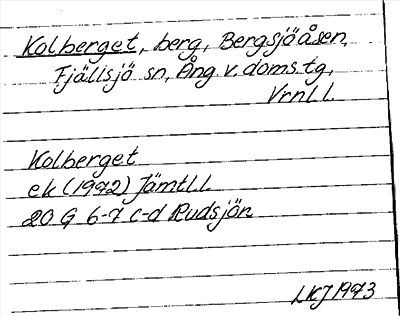 Kolberget, berg, Bergsjöåsen,
Fjällsjö sn, Ång. v. doms.tg,
Vrnl l.
Kolberget
ek (1972) Jämtl l
20 G 6-7 c-d Rudsjön
LKJ 1973